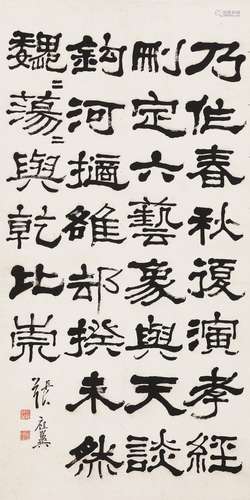 乃作春秋復演孝經
刪定六藝象與天談
鉤河擿雒却揆未然
魏〻蕩〻與乾比崇
張祖翼